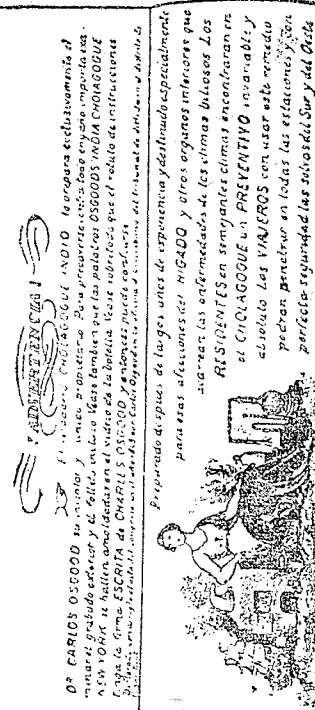 ¡ADVERTENCIA!
El verdadero CHOLAGOGUE INDIO lo prepara esclusivamente el
DR CARLOS OSGOOD su inventor y unico propietario Para precaverse contra todo engaño importa exa-
minar el grabado exterior y el folleto incluso Vease tambien que las palabras OSGOODS INDIA CHOLAGOGUE
NEW YORK se hallen amoldadas en el vidrio de la botella Vease sobretodo que el rotulo de instrucciones
tenga la firma ESCRITA de CHARLES OSGOOD y entonces puede confiarse
Preparado despues de largos años de esperiencia y destinado especialmente
para esas afecciones del HIGADO y otros organos interiores que
acarrean las enfermedades de los climas biliosos LOS
RESIDENTES en semejantes climas encontraran en
el CHOLAGOGUE un PREVENTIVO invariable y
absoluto Los VIAJEROS con usar este remedio
podran penetrar en todas las estaciones y con
perfecta seguridad las selvas del Sur y del Oeste